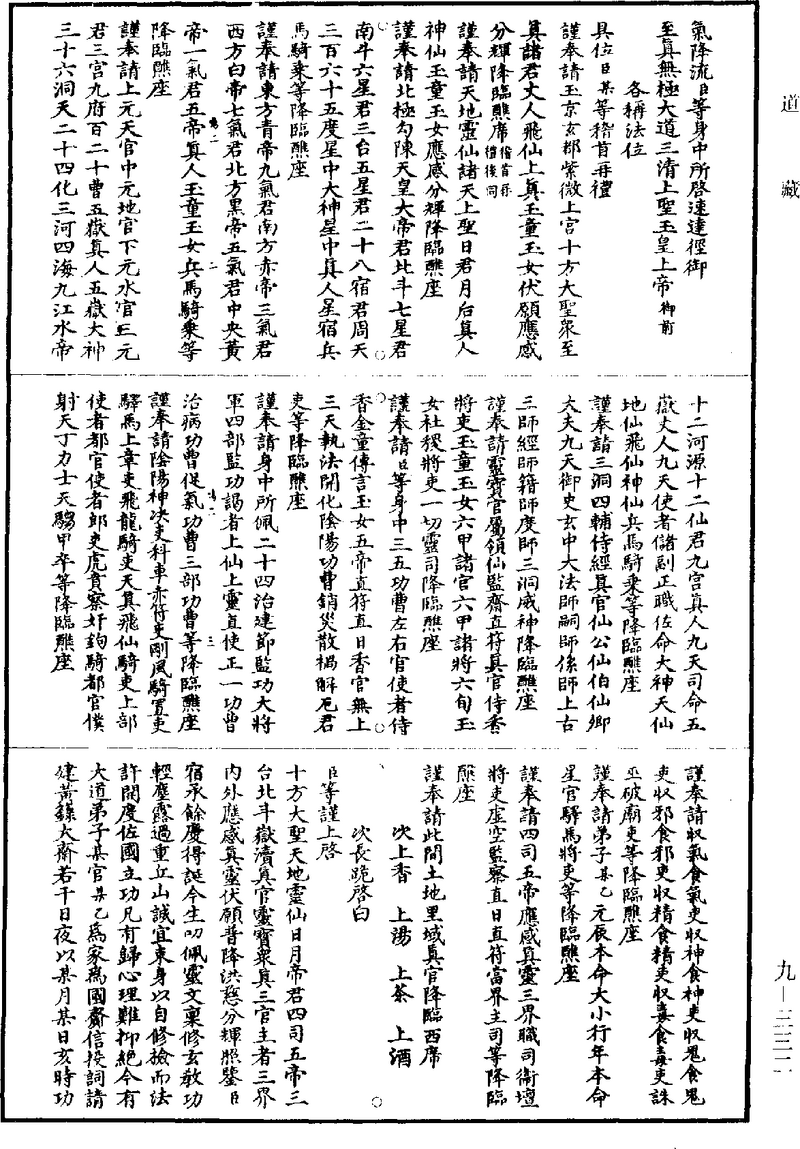 道藏
氣降流臣等身中所啓速達徑御
至真無極大道三清上聖玉皇上帝御前
各稱法位
具位臣某等稽首再禮
謹奉請玉京玄都紫微上宮十方大聖衆至
真諸君丈人飛仙上真玉童玉女伏願應感
分輝降臨醮席稽首再禮後同
謹奉請天地靈仙諸天上聖日君月后真人
神仙玉童玉女應感分輝降臨醮座
謹奉請北極勾陳天皇大帝君北斗七星君
南斗六星君三台五星君二十八宿君周天
三百六十五度星中大神星中真人星宿兵
馬騎乘等降臨醮座
謹奉請東方青帝九氣君南方赤帝三氣君
西方白帝七氣君北方黑帝五氣君中央黃
帝一氣君五帝真人玉童玉女兵馬騎乘等
降臨醮座
謹奉請上元天官中元地官下元水官三元
君三官九府百二十曹五嶽真人五嶽大神
三十六洞天二十四化三河四海九江水帝
十二河源十二仙君九宮真人九天司命五
嶽丈人九天使者儲副正職佐命大神天仙
地仙飛仙神仙兵馬騎乘等降臨醮座
謹奉請三洞四輔侍經真官仙公仙伯仙卿
大夫九天御史玄中大法師嗣師係師上古
三師經師籍師度師三洞威神降臨醮座
謹奉請靈寶官屬領仙監齋直符真官侍香
將吏玉童玉女六甲諸官六甲諸將六旬玉
女社稷將吏一切靈司降臨醮座
謹奉請臣等身中三五功曹左右官使者侍
香金童傳言玉女五帝直符直日香官無上
三天執法開化陰陽功曹銷災散禍解厄君
吏等降臨醮座
謹奉請身中所佩二十四治建節監功大將
軍四部監功謁者上仙上靈直使正一功曹
治病功曹促氣功曹三部功曹等降臨醮座
謹奉請陰陽神决吏科車赤符吏剛風騎置吏
驛馬上章吏飛龍騎吏天真飛仙騎吏上部
使者都官使者郎吏虎賁察奸鉤騎都官僕
射天丁力士天騶甲卒等降臨醮座
謹奉請收氣食氣吏收神食神吏收鬼食鬼
吏收邪食邪吏收精食精吏收毒食毒吏誅
巫破廟吏等降臨醮座
謹奉請弟子某乙元辰本命大小行年本命
星官驛馬將吏等降臨醮座
謹奉請四司五帝應感真靈三界職司衛壇
將吏虛空監察直日直符當界主司等降臨
醮座
謹奉請此間土地里域真官降臨西席
次上香 上湯 上茶 上酒
次長跪啓白
臣等謹上啓
十方大聖天地靈仙日月帝君四司五帝三
台北斗嶽瀆真官靈寶衆真三官主者三界
內外應感真靈伏願普降洪慈分輝照鑒臣
宿承餘慶得誕今生叨佩靈文稟修玄教功
輕塵露過重丘山誠宜束身以自修檢而法
許開度佐國立功凡有歸心理難抑絕今有
大道弟子某官某乙爲家爲國齎信投詞請
建黃籙大齋若干日夜以某月某日亥時功
九—三三二